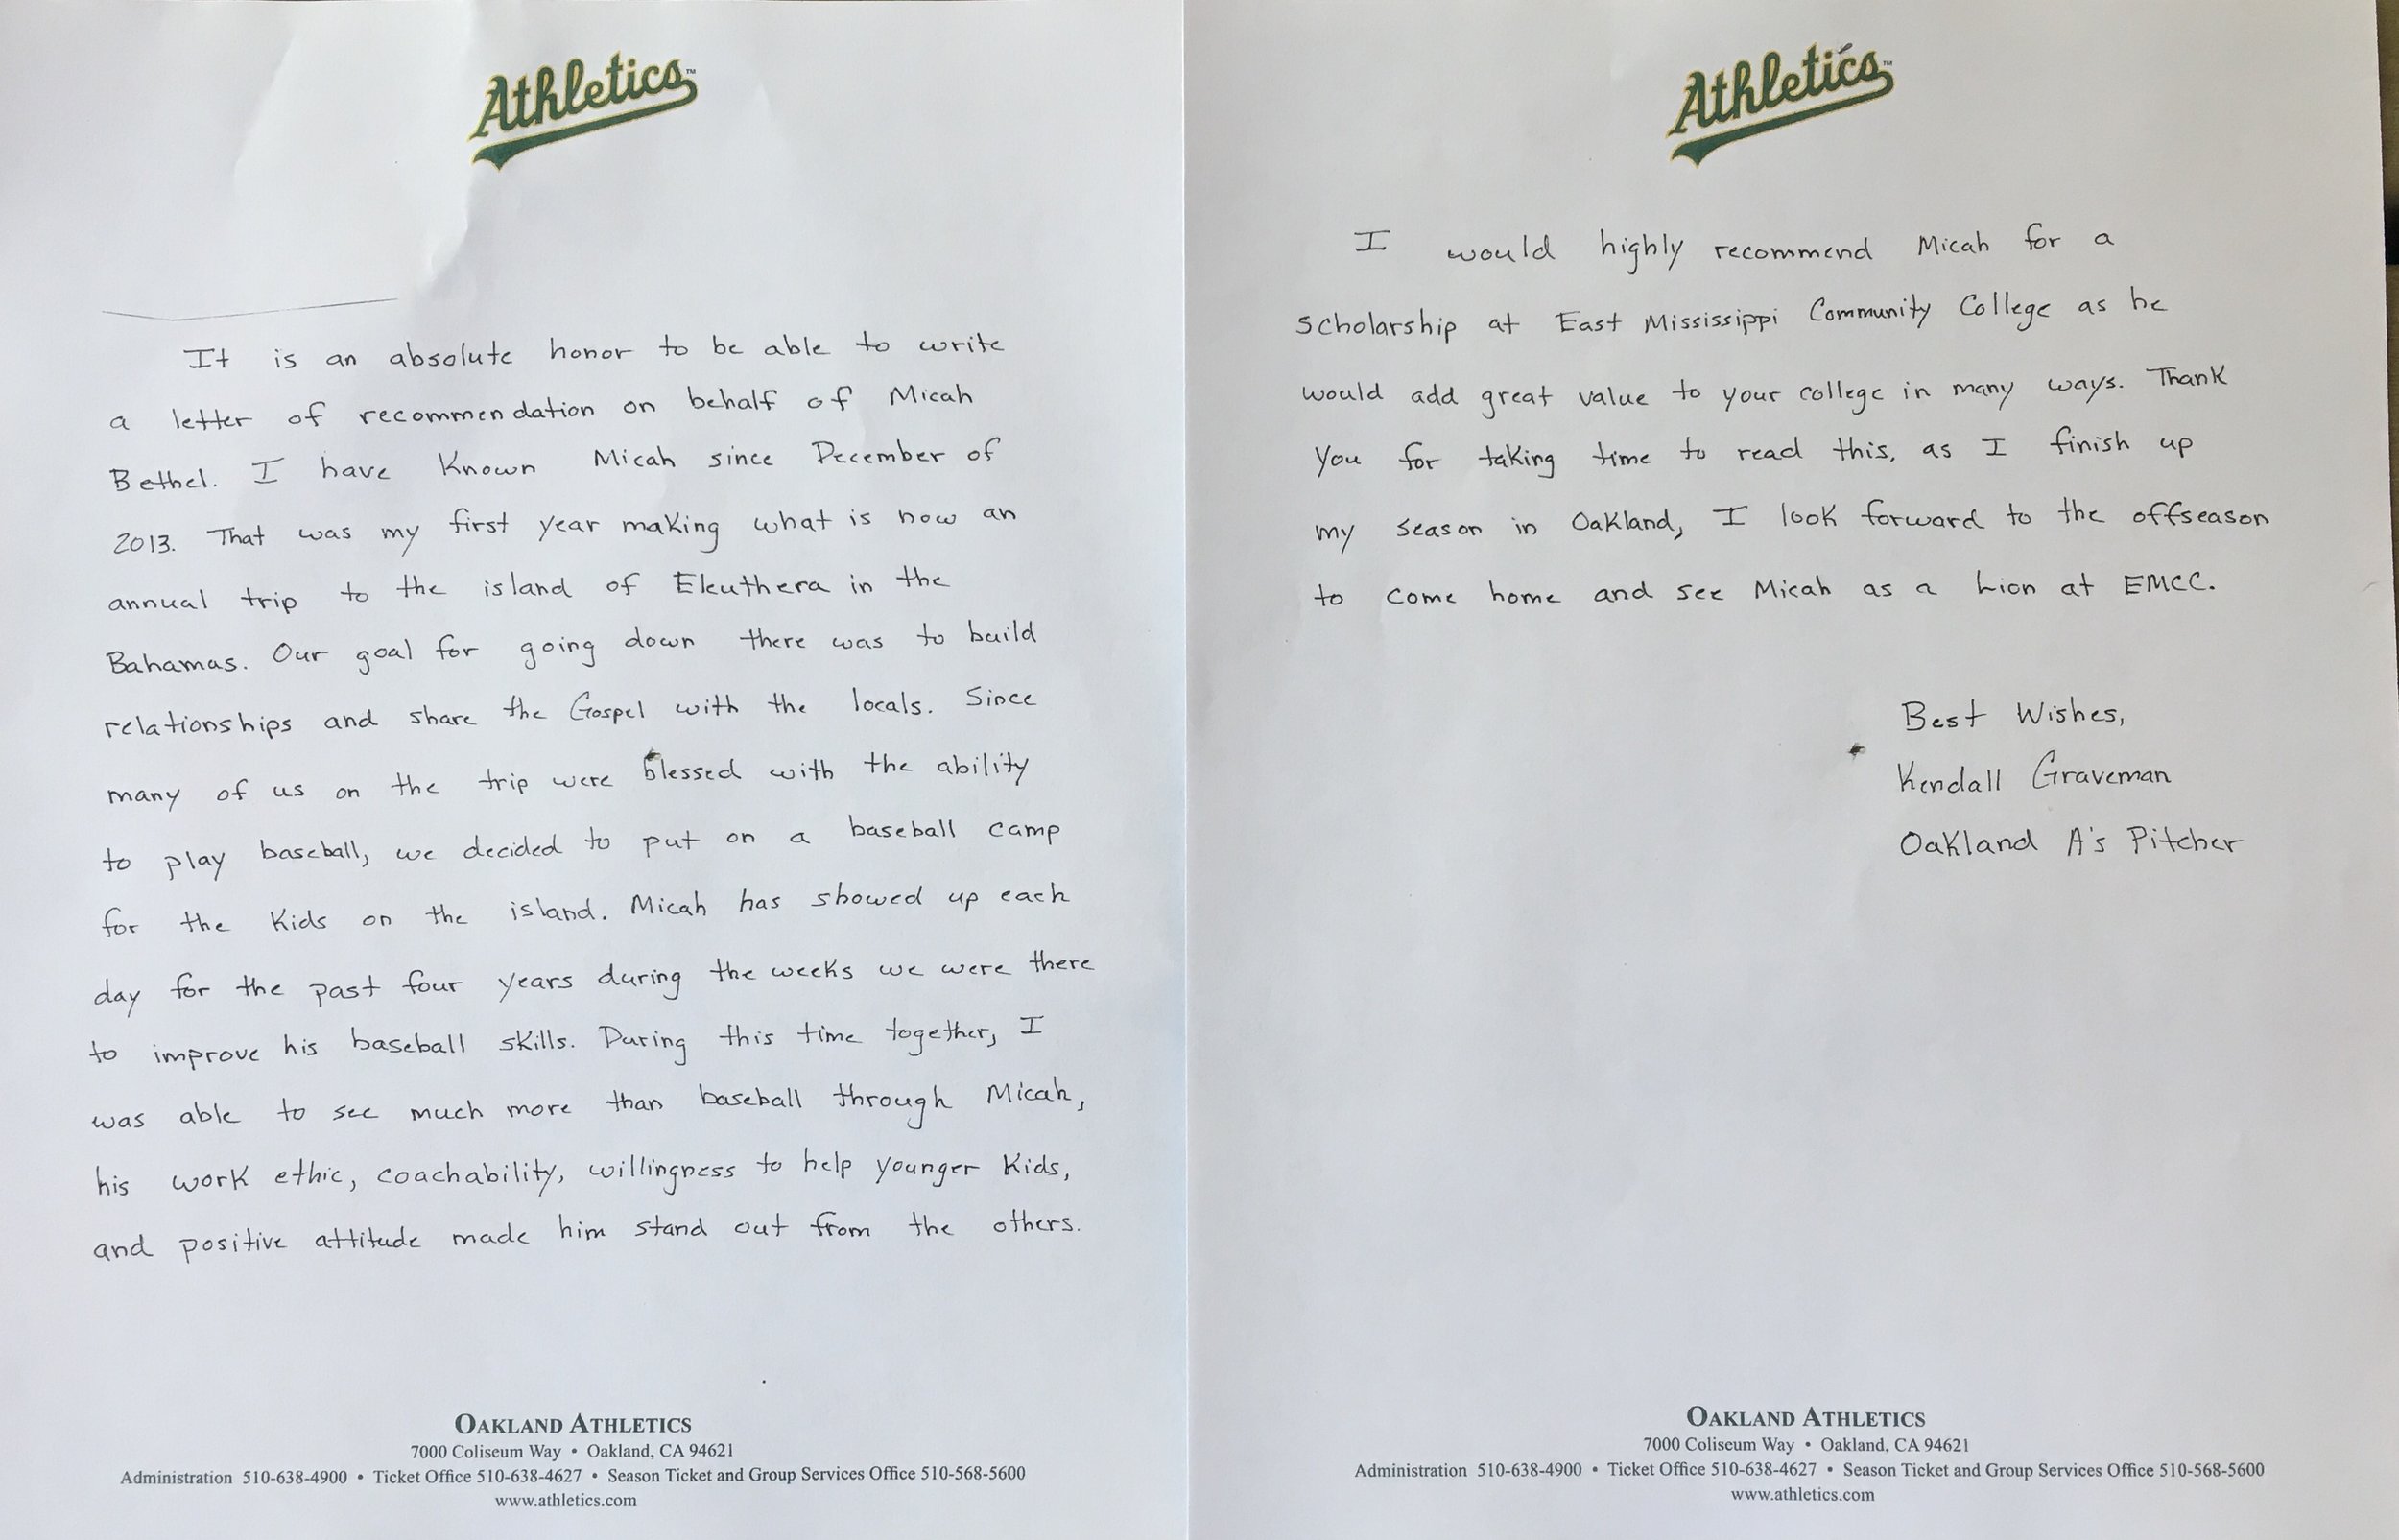 Athletics™
It is an absolute honor to be able to write
a letter of recommendation on behalf of Micah
Bethel. I have known Micah since December of
2013. That was my first year making what is now an
annual trip to the island of Eleuthera in the
Bahamas. Our goal for going down there was to build
relationships and share the Gospel with the locals. Since
many of us on the trip were blessed with the ability
to play baseball, we decided to put on a baseball camp
for the kids on the island. Micah has showed up each
day for the past four years during the weeks we were there
to improve his baseball skills. During this time together, I
was able to see much more than baseball through Micah,
his work ethic, coachability, willingness to help younger kids,
and positive attitude made him stand out from the others.
OAKLAND ATHLETICS
7000 Coliseum Way • Oakland, CA 94621
Administration 510-638-4900 • Ticket Office 510-638-4627 • Season Ticket and Group Services Office 510-568-5600
www.athletics.com
Athletics™
I would highly recommend Micah for a
scholarship at East Mississippi Community College as he
would add great value to your college in many ways. Thank
you for taking time to read this, as I finish up
my season in Oakland, I look forward to the offseason
to come home and see Micah as a Lion at EMCC.
Best Wishes,
Kendall Graveman
Oakland A's Pitcher
OAKLAND ATHLETICS
7000 Coliseum Way • Oakland, CA 94621
Administration 510-638-4900 • Ticket Office 510-638-4627 • Season Ticket and Group Services Office 510-568-5600
www.athletics.com